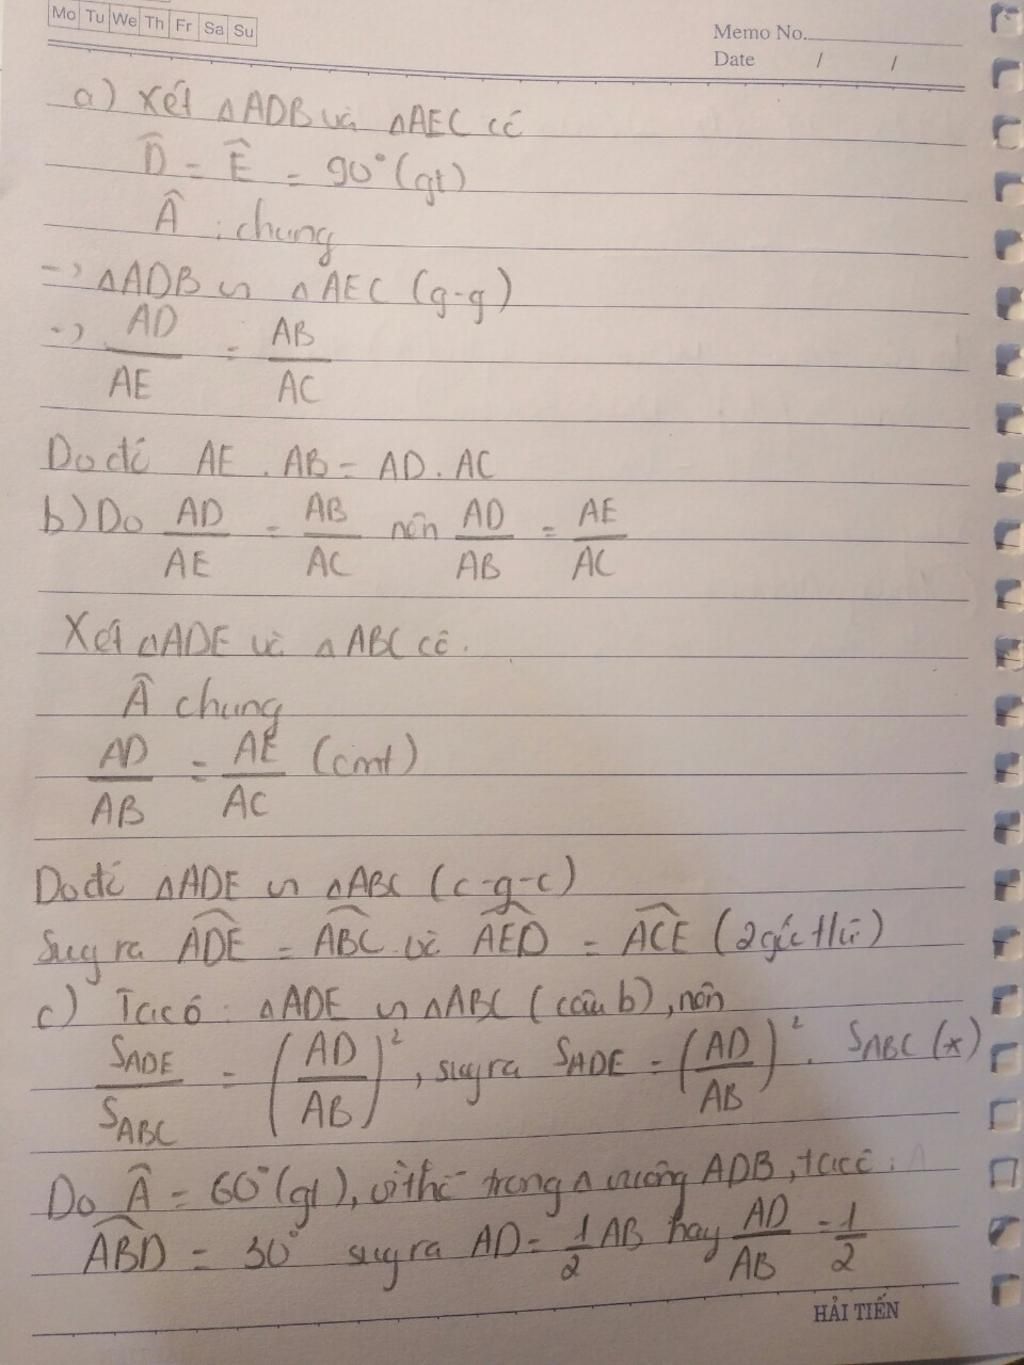 Mo Tu We Th Fr Sa Su
Memo No.
Date / /
a) Xét △ADB và △AEC có
D̂ = Ê = 90° (gt)
Â : chung
-> △ADB ∽ △AEC (g-g)
-> AD/AE = AB/AC
Do đó AE . AB = AD . AC
b) Do AD/AE = AB/AC nên AD/AB = AE/AC
Xét △ADE và △ABC có.
Â chung
AD/AB = AE/AC (cmt)
Do đó △ADE ∽ △ABC (c-g-c)
Suy ra ADE^ = ABC^ và AED^ = ACE^ (2 góc t/ứ)
c) Ta có : △ADE ∽ △ABC (câu b), nên
S_ADE/S_ABC = (AD/AB)², suy ra S_ADE = (AD/AB)² . S_ABC (*)
Do Â = 60° (gt), vì thế trong △ vuông ADB, ta có :
ABD^ = 30° suy ra AD = 1/2 AB hay AD/AB = 1/2
HẢI TIẾN